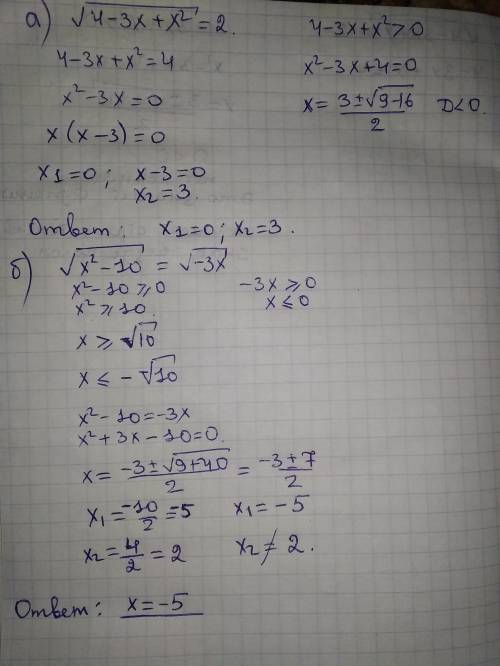 а) √(4-3x+x²) = 2.    4-3x+x²>0
4-3x+x²=4    x²-3x+4=0
x²-3x=0    x= (3±√(9-16))/2 D<0.
x(x-3)=0
x1=0; x-3=0
x2=3.
Ответ: x1=0; x2=3.
б) √(x²-10) = √(-3x)
x²-10⩾0    -3x⩾0
x²⩾10.    x⩽0
x⩾√10
x⩽-√10
x²-10=-3x
x²+3x-10=0.
x= (-3±√(9+40))/2 = (-3±7)/2
x1= -10/2 =-5    x1=-5
x2= 4/2 = 2    x2≠2.
Ответ: x=-5